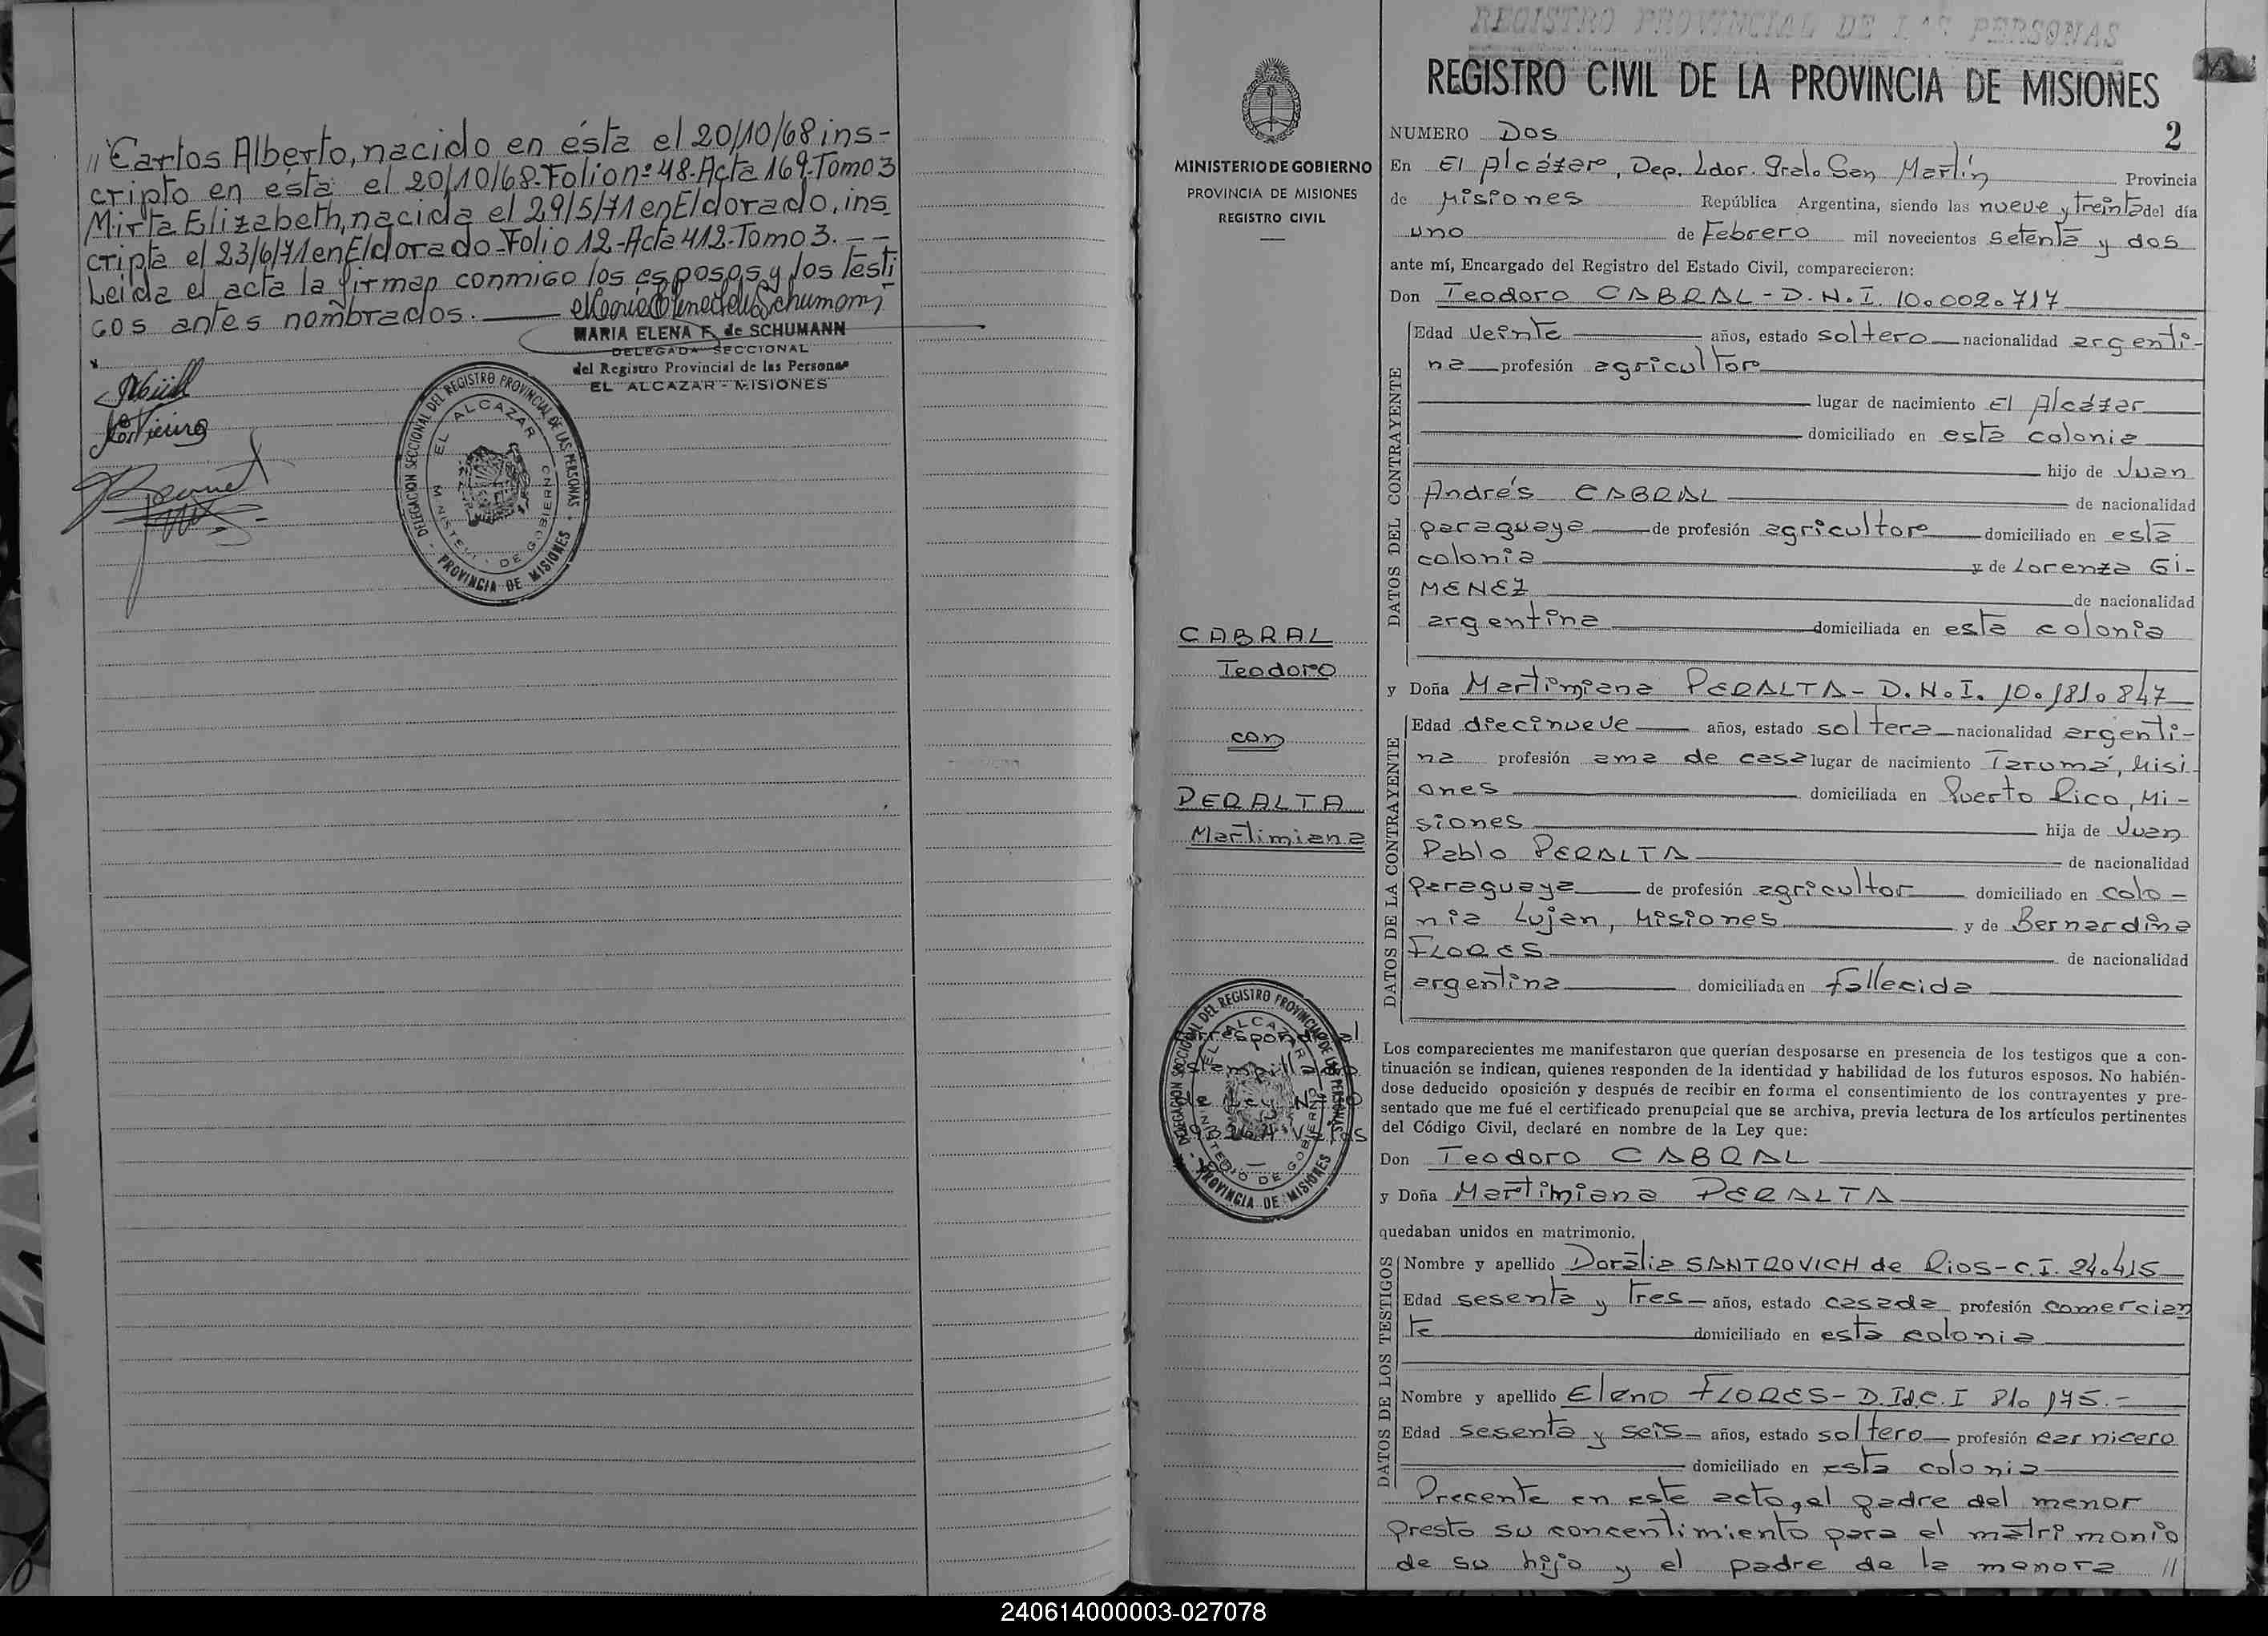 "Carlos Alberto, nacido en ésta el 20/10/68 ins-
cripto en ésta el 20/10/68-Folio nº 48-Acta 169-Tomo 3
Mirta Elizabeth, nacida el 29/5/71 en Eldorado, ins
cripta el 23/6/71 en Eldorado-Folio 12-Acta 412-Tomo 3.--
Leida el acta la firman conmigo los esposos y los testi
gos antes nombrados.
MARIA ELENA F. de SCHUMANN
DELEGADA SECCIONAL
del Registro Provincial de las Personas
EL ALCAZAR - MISIONES
DELEGACION SECCIONAL DEL REGISTRO PROVINCIAL DE LAS PERSONAS
EL ALCAZAR
MINISTERIO DE GOBIERNO
- PROVINCIA DE MISIONES -
MINISTERIO DE GOBIERNO
PROVINCIA DE MISIONES
REGISTRO CIVIL
CABRAL
Teodoro
con
PERALTA
Martimiana
DELEGACION SECCIONAL DEL REGISTRO PROVINCIAL DE LAS PERSONAS
EL ALCAZAR
MINISTERIO DE GOBIERNO
- PROVINCIA DE MISIONES
REGISTRO PROVINCIAL DE LAS PERSONAS
REGISTRO CIVIL DE LA PROVINCIA DE MISIONES
NUMERO Dos 2
En El Alcázar, Dep. Ldor. Gral. San Martín Provincia
de Misiones República Argentina, siendo las nueve y treinta del día
uno de Febrero mil novecientos setenta y dos
ante mí, Encargado del Registro del Estado Civil, comparecieron:
Don Teodoro CABRAL - D.N.I. 10.002.717
DATOS DEL CONTRAYENTE
Edad veinte años, estado soltero nacionalidad argenti-
na profesión agricultor
lugar de nacimiento El Alcázar
domiciliado en esta colonia
hijo de Juan
Andrés CABRAL de nacionalidad
paraguaya de profesión agricultor domiciliado en esta
colonia y de Lorenza Gi-
MENEZ de nacionalidad
argentina domiciliada en esta colonia
y Doña Martimiana PERALTA - D.N.I. 10.181.847
DATOS DE LA CONTRAYENTE
Edad diecinueve años, estado soltera nacionalidad argenti-
na profesión ama de casa lugar de nacimiento Tarumá, Misi
ones domiciliada en Puerto Rico, Mi-
siones hija de Juan
Pablo PERALTA de nacionalidad
paraguaya de profesión agricultor domiciliado en colo-
nia Lujan, Misiones y de Bernardina
FLORES de nacionalidad
argentina domiciliada en fallecida
Los comparecientes me manifestaron que querían desposarse en presencia de los testigos que a con-
tinuación se indican, quienes responden de la identidad y habilidad de los futuros esposos. No habién-
dose deducido oposición y después de recibir en forma el consentimiento de los contrayentes y pre-
sentado que me fué el certificado prenupcial que se archiva, previa lectura de los artículos pertinentes
del Código Civil, declaré en nombre de la Ley que:
Don Teodoro CABRAL
y Doña Martimiana PERALTA
quedaban unidos en matrimonio.
DATOS DE LOS TESTIGOS
Nombre y apellido Doralia SANTROVICH de Rios - C.I. 24.415
Edad sesenta y tres - años, estado casada profesión comercian
te domiciliado en esta colonia
Nombre y apellido Eleno FLORES - D.Id.C.I 81.175.-
Edad sesenta y seis - años, estado soltero profesión carnicero
domiciliado en esta colonia
Precente en este acto, el padre del menor
presto su concentimiento para el matrimonio
de su hijo y el padre de la menora //
240614000003-027078